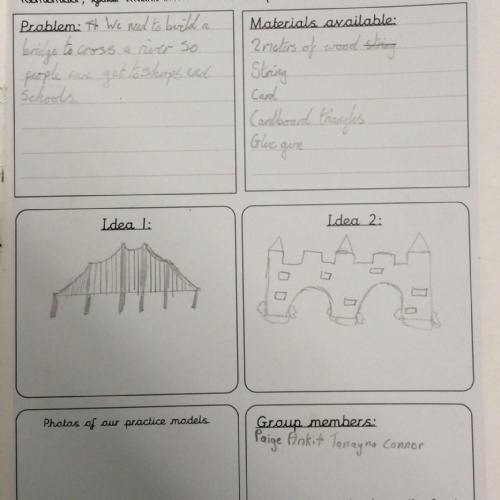 Problem: We need to build a
bridge to cross a river so
people can get to shops and
schools
Materials available:
2 meters of wood string
String
Card
Cardboard triangles
Glue gun
Idea 1:
Idea 2:
Photos of our practice models
Group members:
Paige Ankit Tanayna Connor